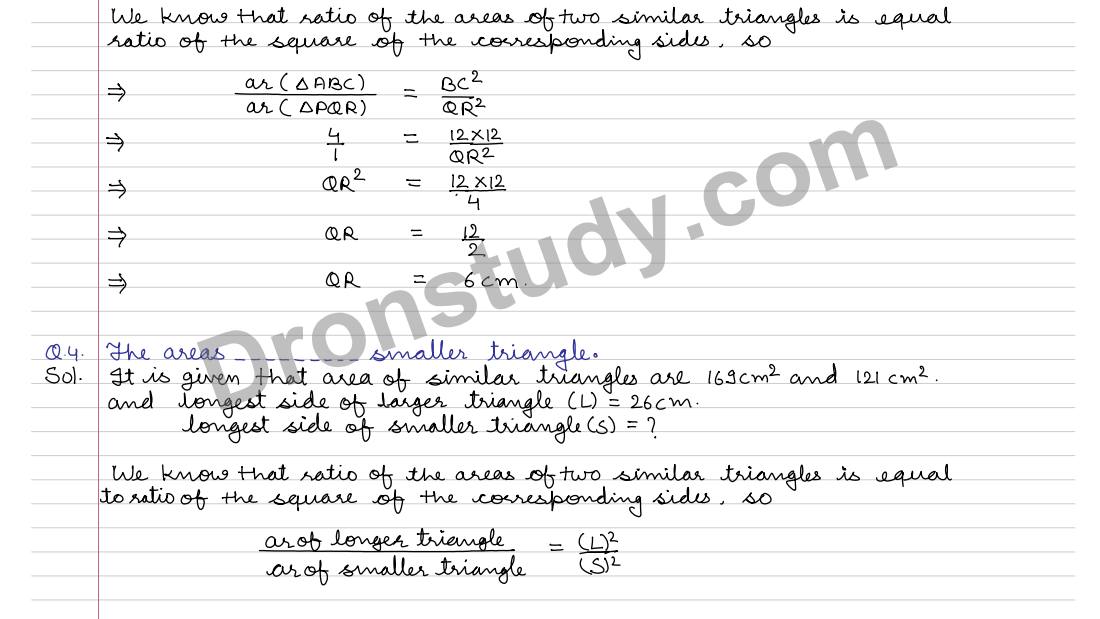 We know that ratio of the areas of two similar triangles is equal
ratio of the square of the corresponding sides, so
⇒ ar (△ABC) / ar (△PQR) = BC² / QR²
⇒ 4/1 = 12×12 / QR²
⇒ QR² = 12×12 / 4
⇒ QR = 12/2
⇒ QR = 6cm.
Q.4. The areas _________ smaller triangle.
Sol. It is given that area of similar triangles are 169cm² and 121 cm².
and longest side of larger triangle (L) = 26cm.
longest side of smaller triangle (S) = ?
We know that ratio of the areas of two similar triangles is equal
to ratio of the square of the corresponding sides, so
ar of longer triangle / ar of smaller triangle = (L)² / (S)²
Dronstudy.com